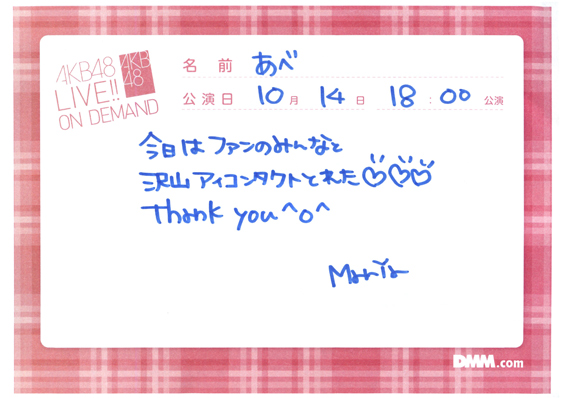 AKB48
LIVE!!
ON DEMAND
AKB
48
名前 あべ
公演日 10月 14日 18:00 公演
今日はファンのみんなと
沢山アイコンタクトとれた♡♡♡
Thank you ^o^
Mariya
DMM.com